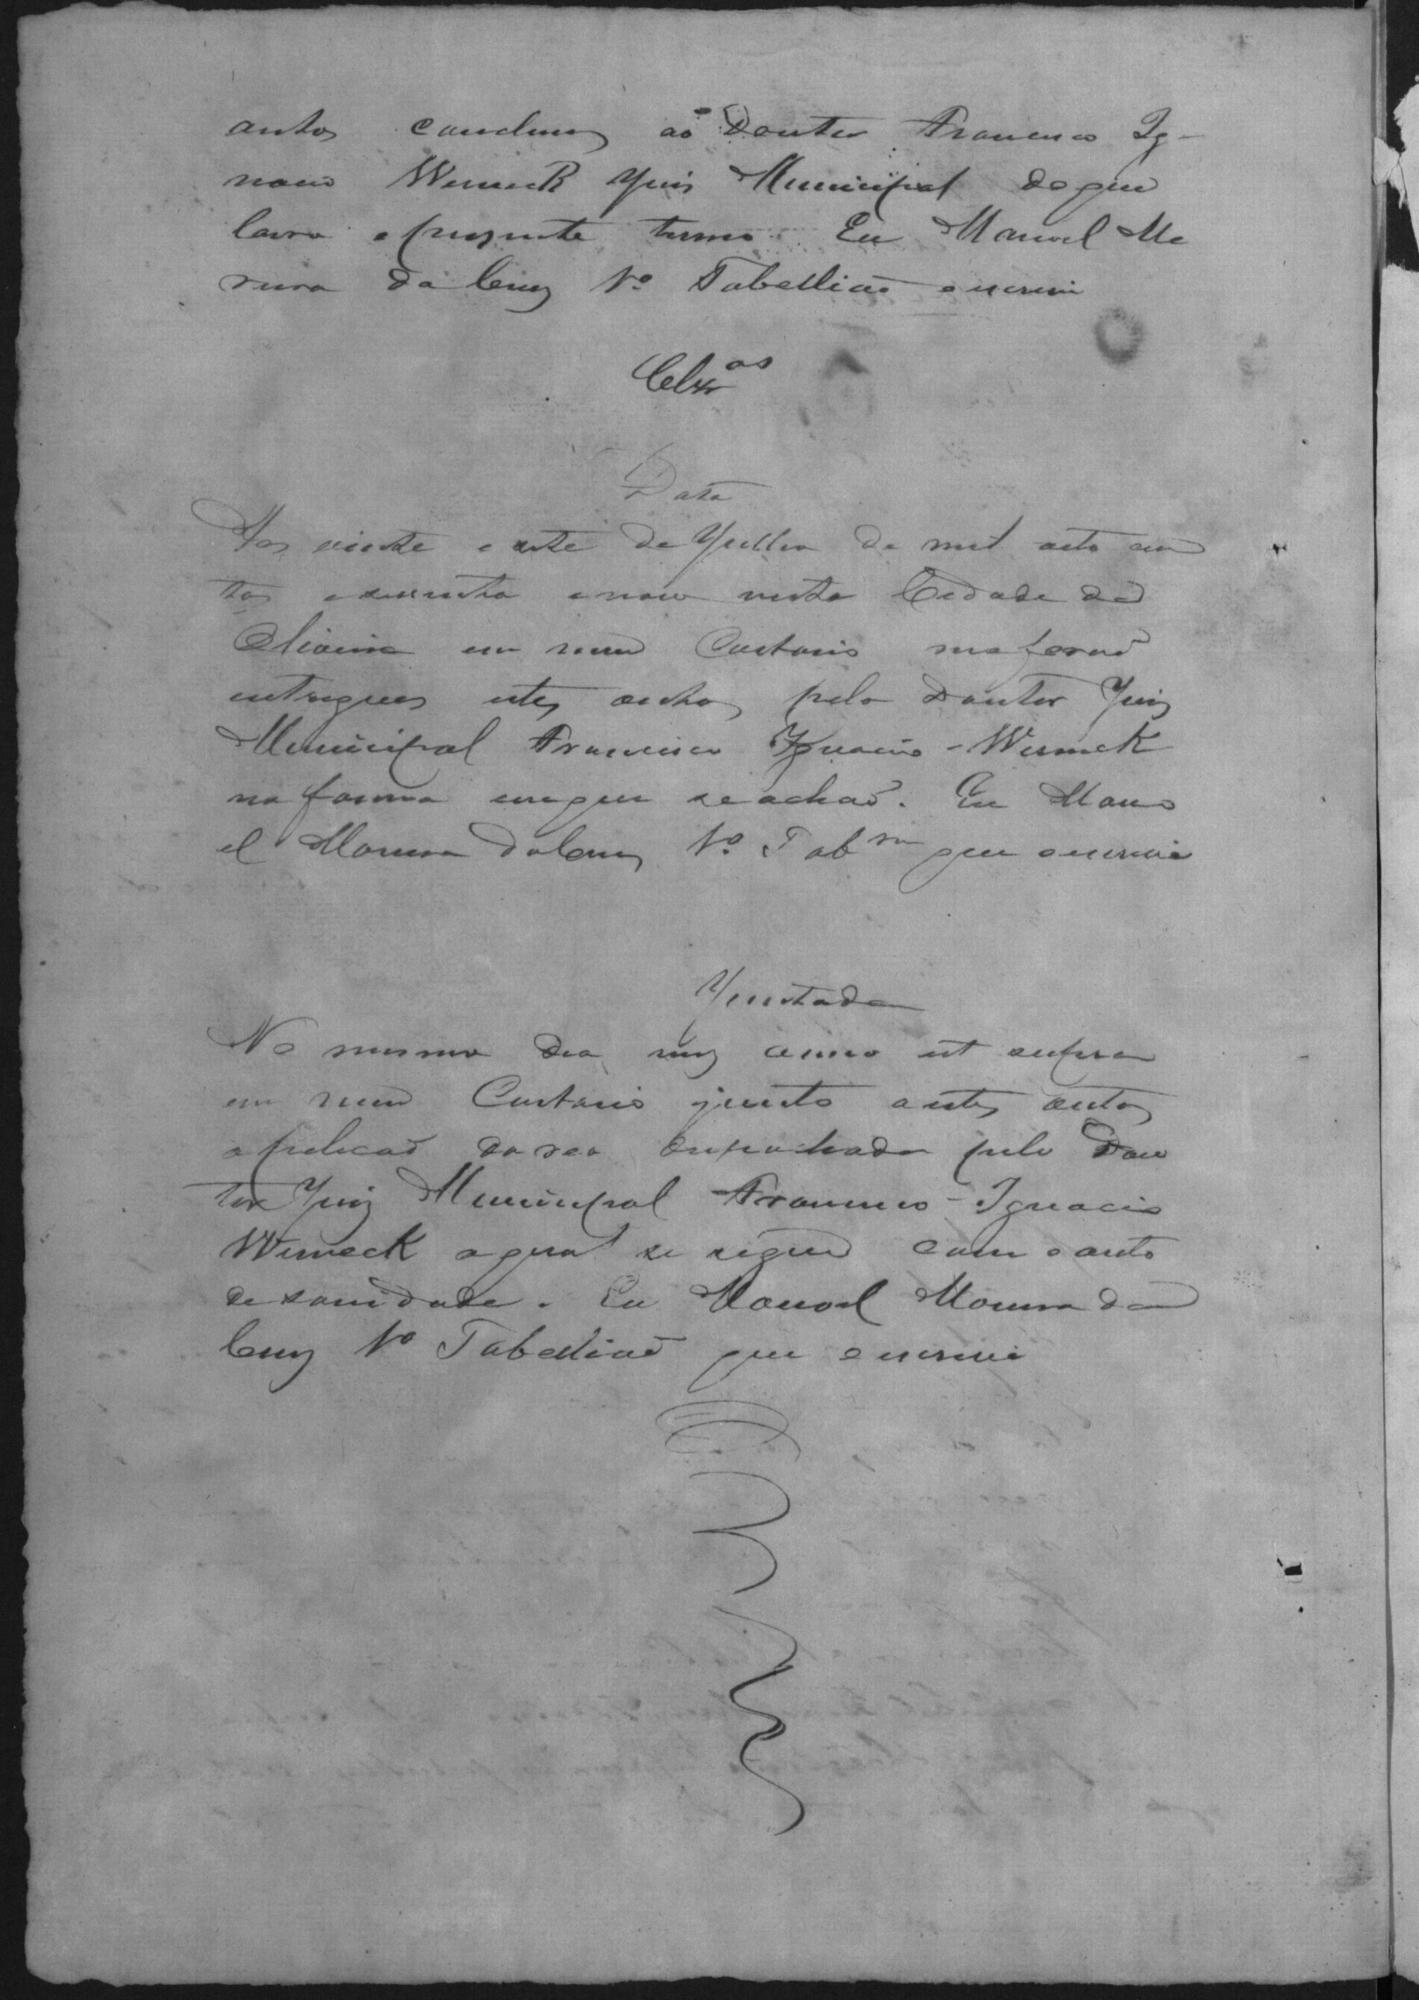 autos concluzos ao Doutor Francisco Ig-
nacio Werneck Juis Municipal do que
lavro o prezente termo. Eu Manoel Mo
reira da Cruz 1º Tabellião escrevi
Clsos
Data
Aos vinte e sete de Julho de mil oito cen
tos e secenta e nove nesta Cidade da
Oliveira em meu Cartorio me forão
entregues estes autos pelo Doutor Juis
Municipal Francisco Ignacio Werneck
na forma em que se achão. Eu Mano
el Moreira da Cruz 1º Tabam que escrevi
Juntada
No mesmo dia mez anno ut supra
em meu Cartorio junto a estes autos
a peticão da rea despachada pelo Dou
tor Juiz Municipal Francisco Ignacio
Werneck a qual se segue com o auto
de sanidade. Eu Manoel Moreira da
Cruz 1º Tabellião que escrevi